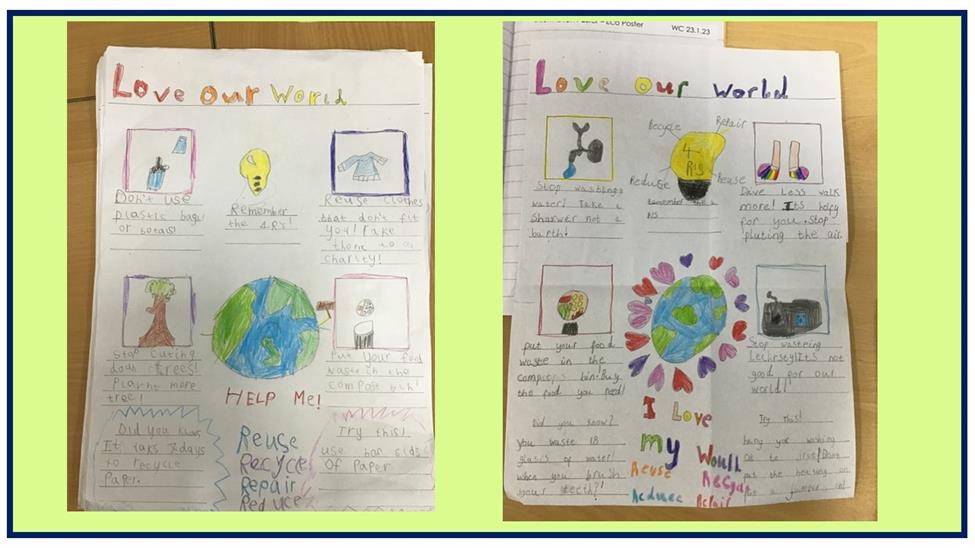 Love Our World
Don't use
plastic bags
or botals!
Remember
the 4R's!
Reuse clothes
that don't fit
you! Take
them to a
charity!
Stop cuting
down trees!
Plarnt more
tree!
HELP Me!
Put your food
waste in the
compost bin!
Did you know
It taks 7 days
to recycle
Paper.
Reuse
Recycle
Repair
Reduce
Try this!
use bor sids
of Paper.
Eco Poster
WC 23.1.23
Love Our World
Stop washing
water! Take a
Sharwer not a
barth!
Recycle
Repair
4
R's
Reduse
Reuse
Remember the 4
Drive Less walk
more! Its helfy
for you. Stop
pluting the air.
put your food
waste in the
bin. Buy
the food you need!
Stop wasteing
Its not
good for our
world!
Did you know?
You waste 18
glasis of water!
when you brush
your teeth?!
I Love
my
Would
Reuse
Recycle
Reduce
Repair
Try this!
hang your washing
put the heating on
put a jumper on!